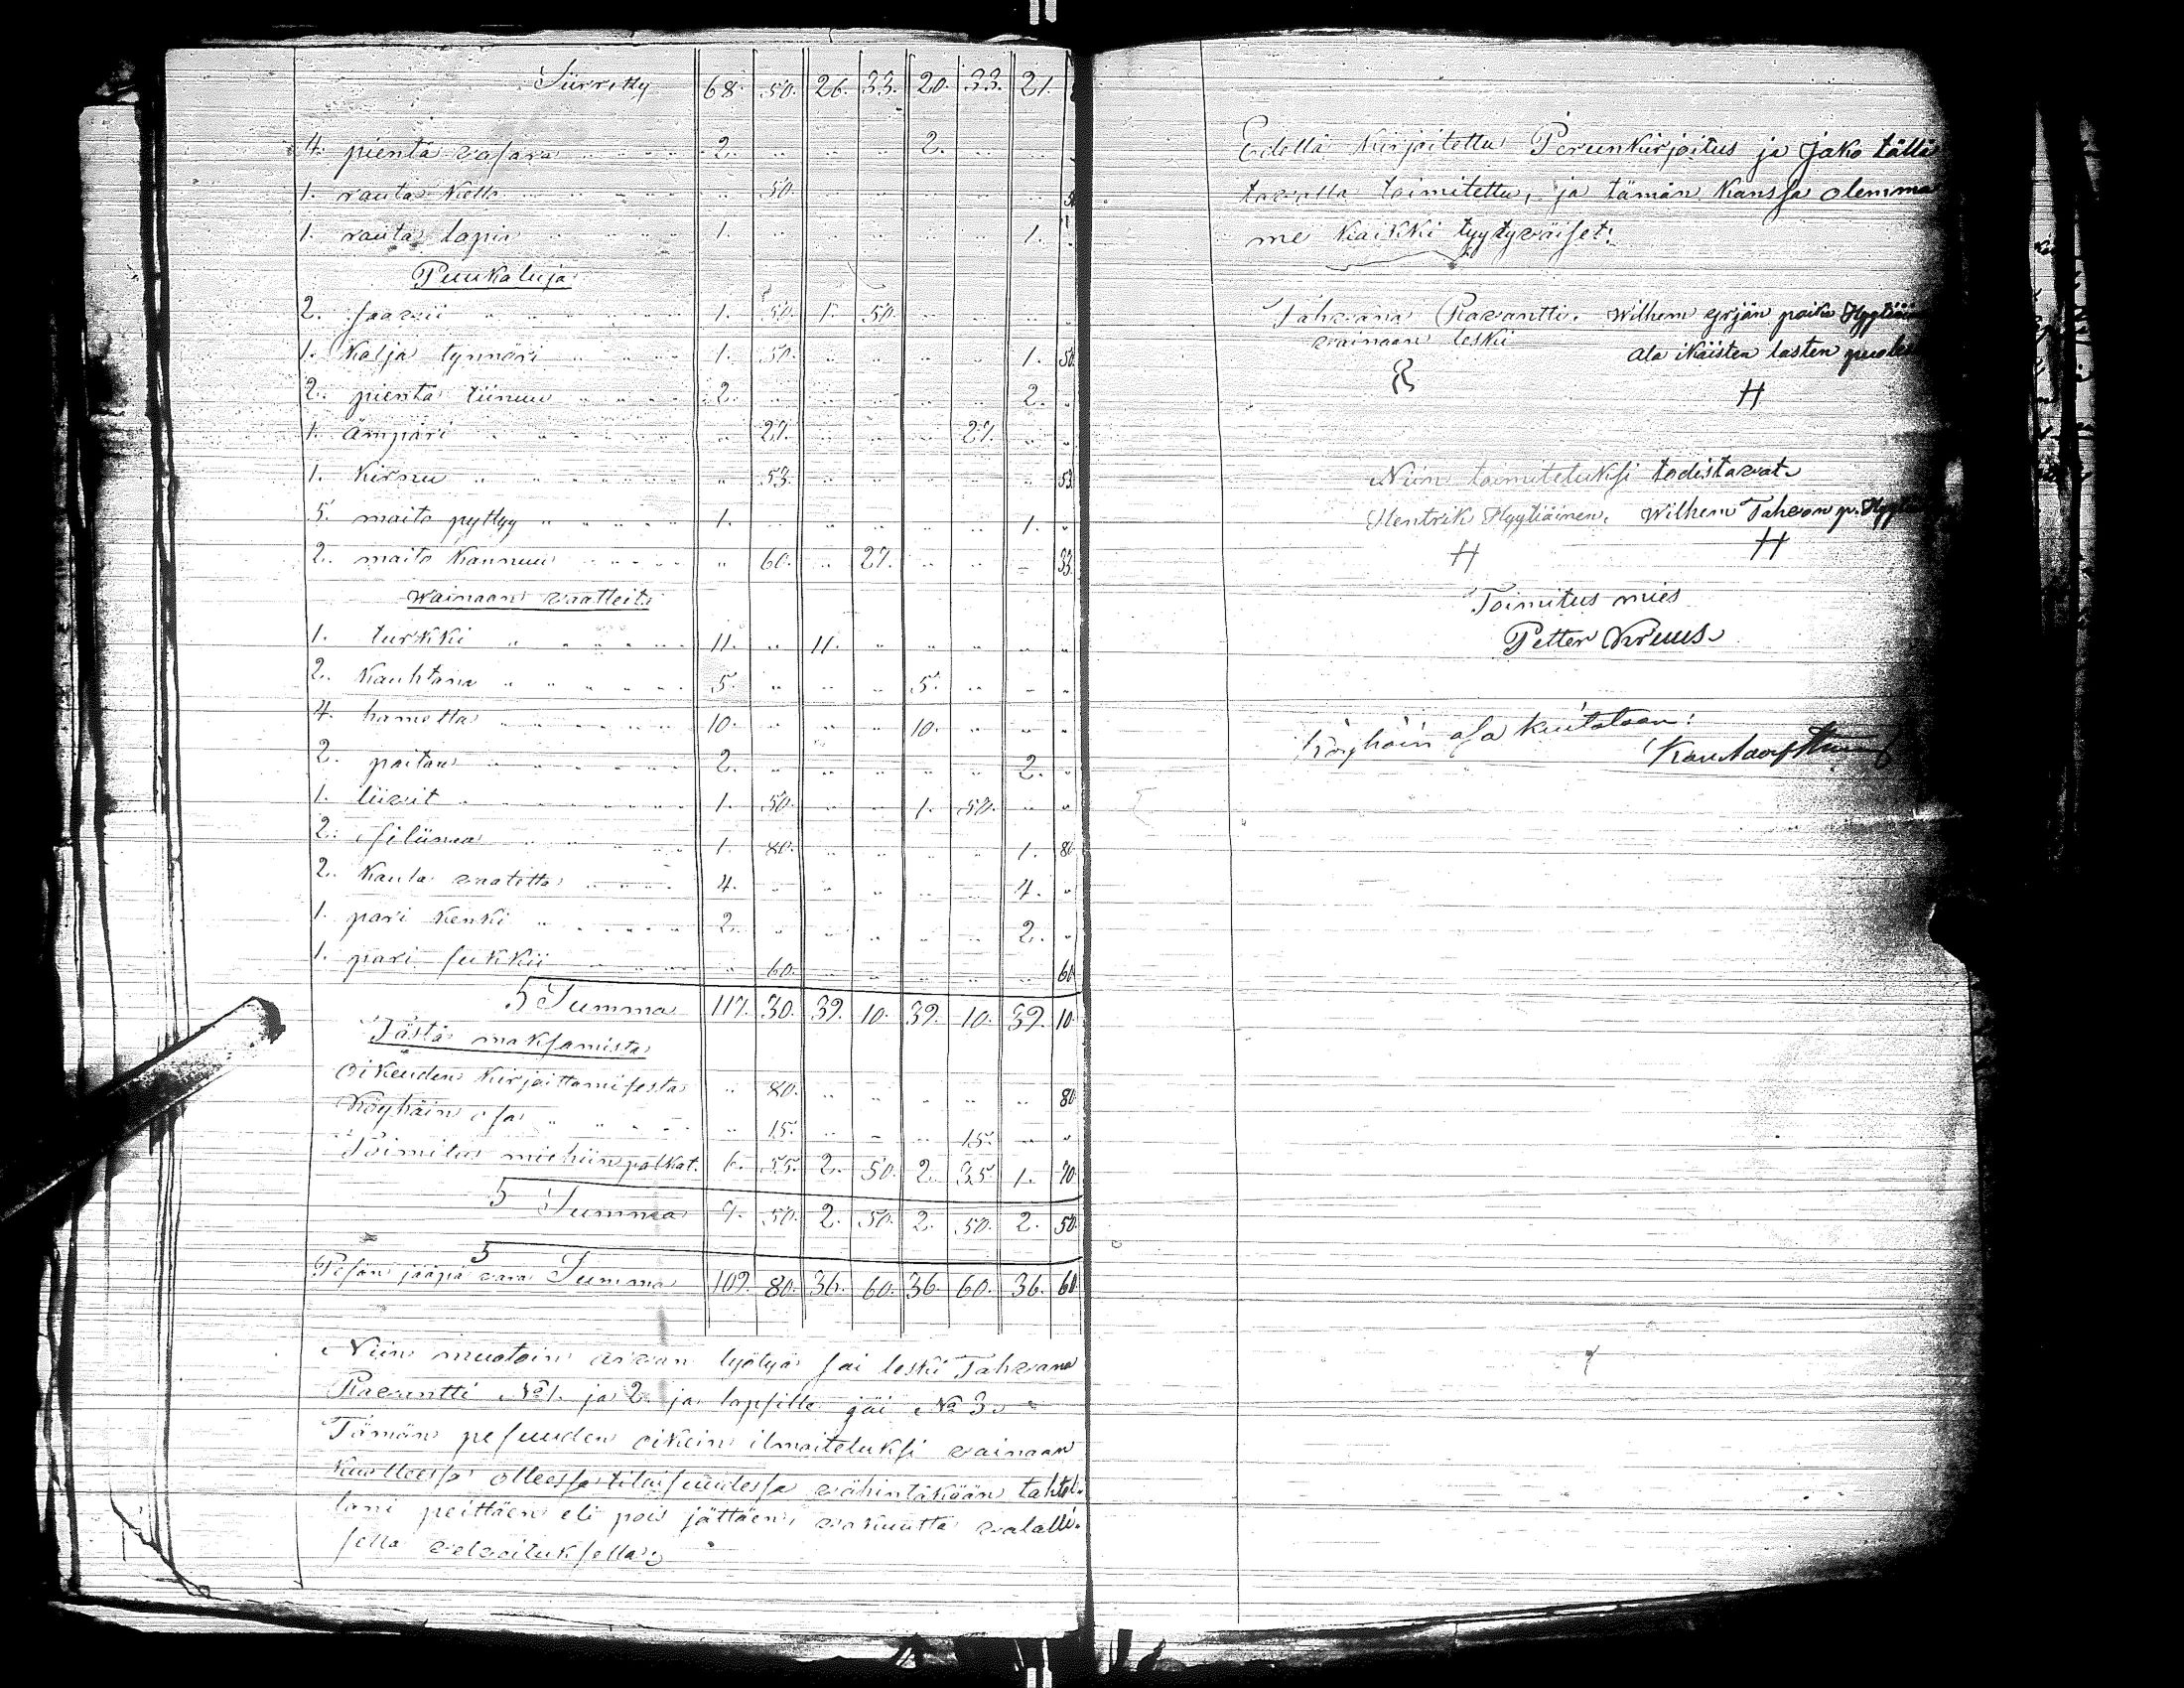 Siirretty 68. 50. 26. 33. 20. 33. 21.
4. pientä vasara 2. .. .. .. 2. .. ..
1. rauta kello .. 50. .. .. .. .. ..
1. rauta lapia 1. .. .. .. .. .. 1. ..
Puukaluja
2. saavii 1. 50. 1. 50. .. .. .. ..
1. kalja tynnöri 1. 50. .. .. .. .. 1. 50.
2. pientä tiinuu 2. .. .. .. .. .. 2. ..
1. ämpäri .. 27. .. .. .. 27. .. ..
1. kirnu .. 53. .. .. .. .. .. 53.
5. maito pyttyy 1. .. .. .. .. .. 1. ..
2. maito kannuu .. 60. .. 27. .. .. .. 33.
Wainaan vaatteita
1. turkki 11. .. 11. .. .. .. .. ..
2. kauhtana 5. .. .. .. 5. .. .. ..
4. hametta 10. .. .. .. 10. .. .. ..
2. paitaa 2. .. .. .. .. .. 2. ..
1. liivit 1. 50. .. .. 1. 50. .. ..
2. siliinea 1. 80. .. .. .. .. 1. 80
2. kaula vaatetta 4. .. .. .. .. .. 4. ..
1. pari kenki 2. .. .. .. .. .. 2. ..
1. pari sukkii .. 60. .. .. .. .. .. 60
Summa 117. 30. 39. 10. 39. 10. 39. 10.
Tästä maksamista
Oikeuden kirjoittamisesta .. 80. .. .. .. .. .. 80
Köyhäin osa .. 15. .. .. .. 15. .. ..
Toimitus miehiin palkat. 6. 55. 2. 50. 2. 35. 1. 70.
Summa 7. 50. 2. 50. 2. 50. 2. 50.
Pesän jääpä vara Summa 109. 80. 36. 60. 36. 60. 36. 60
Niin muotoin arvan lyötyä sai leski Tahvana
Ravantti No 1. ja 2. ja lapsille jäi No 3.
Tämän pesuuden oikein ilmoiteluksi vainaan
kuolleessa olleessa tilaisuudessa vähintäkään tahtol-
lani peittäen eli pois jättäen, vakuutta valalli-
sella velvoituksella:
Edellä kirjoitettu Perunkirjoitus ja Jako tällä
tavalla toimitettu, ja tämän kanssa olemma
me kaikki tyytyväiset:
Tahvana Ravantti. Wilhem yrjän poika Hyytiäi
vainaan leski
ala ikäisten lasten puoles
R H
Niin toimiteluksi todistavat
Hentrik Hyytiäinen. Wilhem Tahvon p. Hyytiä
H H
Toimitus mies
Petter Kruus.
Köyhäin osa kuitataan: